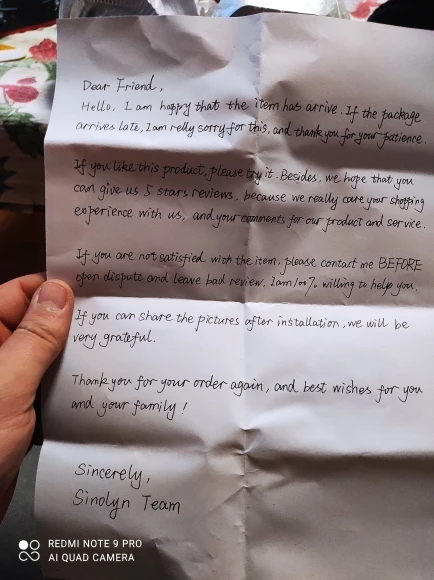 Dear Friend,
Hello. I am happy that the item has arrive. If the package
arrives late, I am relly sorry for this, and thank you for your patience.
If you like this product, please try it. Besides, we hope that you
can give us 5 stars reviews, because we really care your shopping
experience with us, and your comments for our product and service.
If you are not satisfied with the item, please contact me BEFORE
open dispute and leave bad review. I am 100% willing to help you.
If you can share the pictures after installation, we will be
very grateful.
Thank you for your order again, and best wishes for you
and your family!
Sincerely,
Sinolyn Team
REDMI NOTE 9 PRO
AI QUAD CAMERA